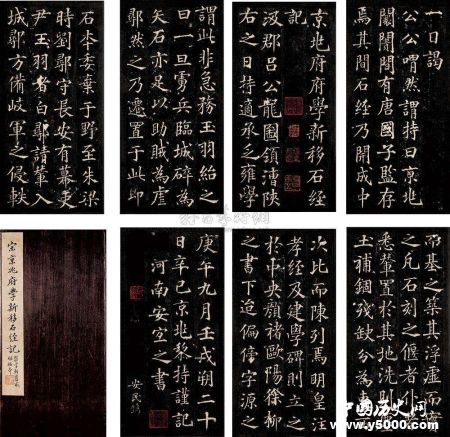 京兆府府學新移石經
記
汲郡呂公龍圖領漕陝
右之日持適承乏雍學
一日謁
公公喟然謂持曰京兆
闤闠間有唐國子監存
焉其間石經乃開成中
石本委棄于野至朱梁
時劉鄩守長安有幕吏
尹玉羽者白鄩請輦入
城鄩方備岐軍之侵軼
謂此非急務玉羽紿之
曰一旦虜兵臨城碎為
矢石亦足以助賊為虐
鄩然之乃遷置于此即
而基之築其浮虛而
之凡石刻之偃者仆
悉輦置於其地洗剔
土補錮殘缺分為東
次比而陳列焉明皇注
孝經及建學碑則立之
於中央顏褚歐陽徐柳
之書下迨偏傍字源之
庚午九月壬戌朔二十
日辛巳京兆黎持謹記
河南安宜之書
安民鐫
宋京兆府學新移石經記
中国历史网
www.y5000.com